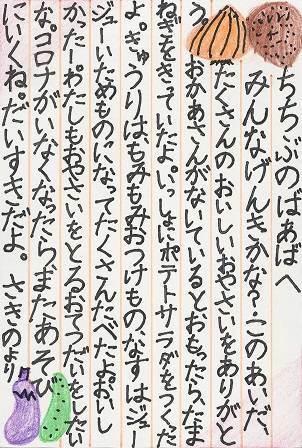 ちちぶのばあばへ
みんなげんきかな?このあいだ、
たくさんのおいしいおやさいをありがと
う。おかあさんがないているとおもったら、たま
ねぎをきっていたよ。いっしょにポテトサラダをつくった
よ。きゅうりは、もみもみおつけもの、なすは、ジュー
ジューいためものになってたくさんたべたよ。おいし
かった。わたしもおやさいをとるおてつだいをしたい
な。コロナがいなくなったら、またあそび
にいくね。だいすきだよ。 さきのより